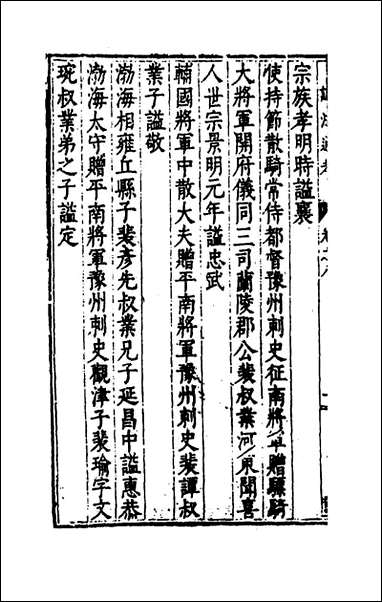 謚法通考
卷之八
宗族孝明時謚襄
使持節散騎常侍都督豫州刺史征南將軍贈驃騎
大將軍開府儀同三司蘭陵郡公裴叔業河東聞喜
人世宗景明元年謚忠武
輔國將軍中散大夫贈平南將軍豫州刺史裴譚叔
業子謚敬
渤海相雍丘縣子裴彥先叔業兄子延昌中謚惠恭
渤海太守贈平南將軍豫州刺史觀津子裴瑜字文
琬叔業弟之子謚定